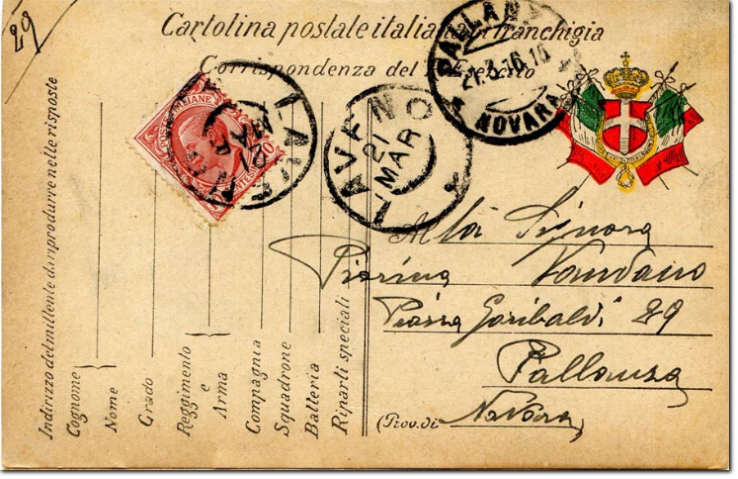 29
Cartolina postale italiana in franchigia
Corrispondenza del R. Esercito
PALLANZA
21.3.16.16
NOVARA
LAVENO
21 MAR
LAVENO
21
MAR
POSTE ITALIANE
10
Alla Signora
Pierina Vandano
Piazza Garibaldi 29
Pallanza
(Prov. di Novara)
Indirizzo del mittente da riprodurre nelle risposte
Cognome
Nome
Grado
Reggimento
e
Arma
Compagnia
Squadrone
Batteria
Riparti speciali